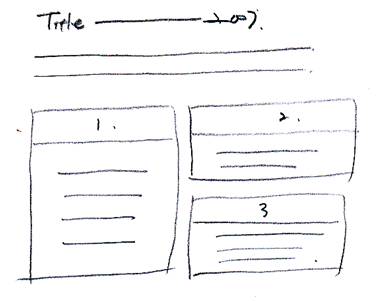 Title 2007.
1.
2.
3